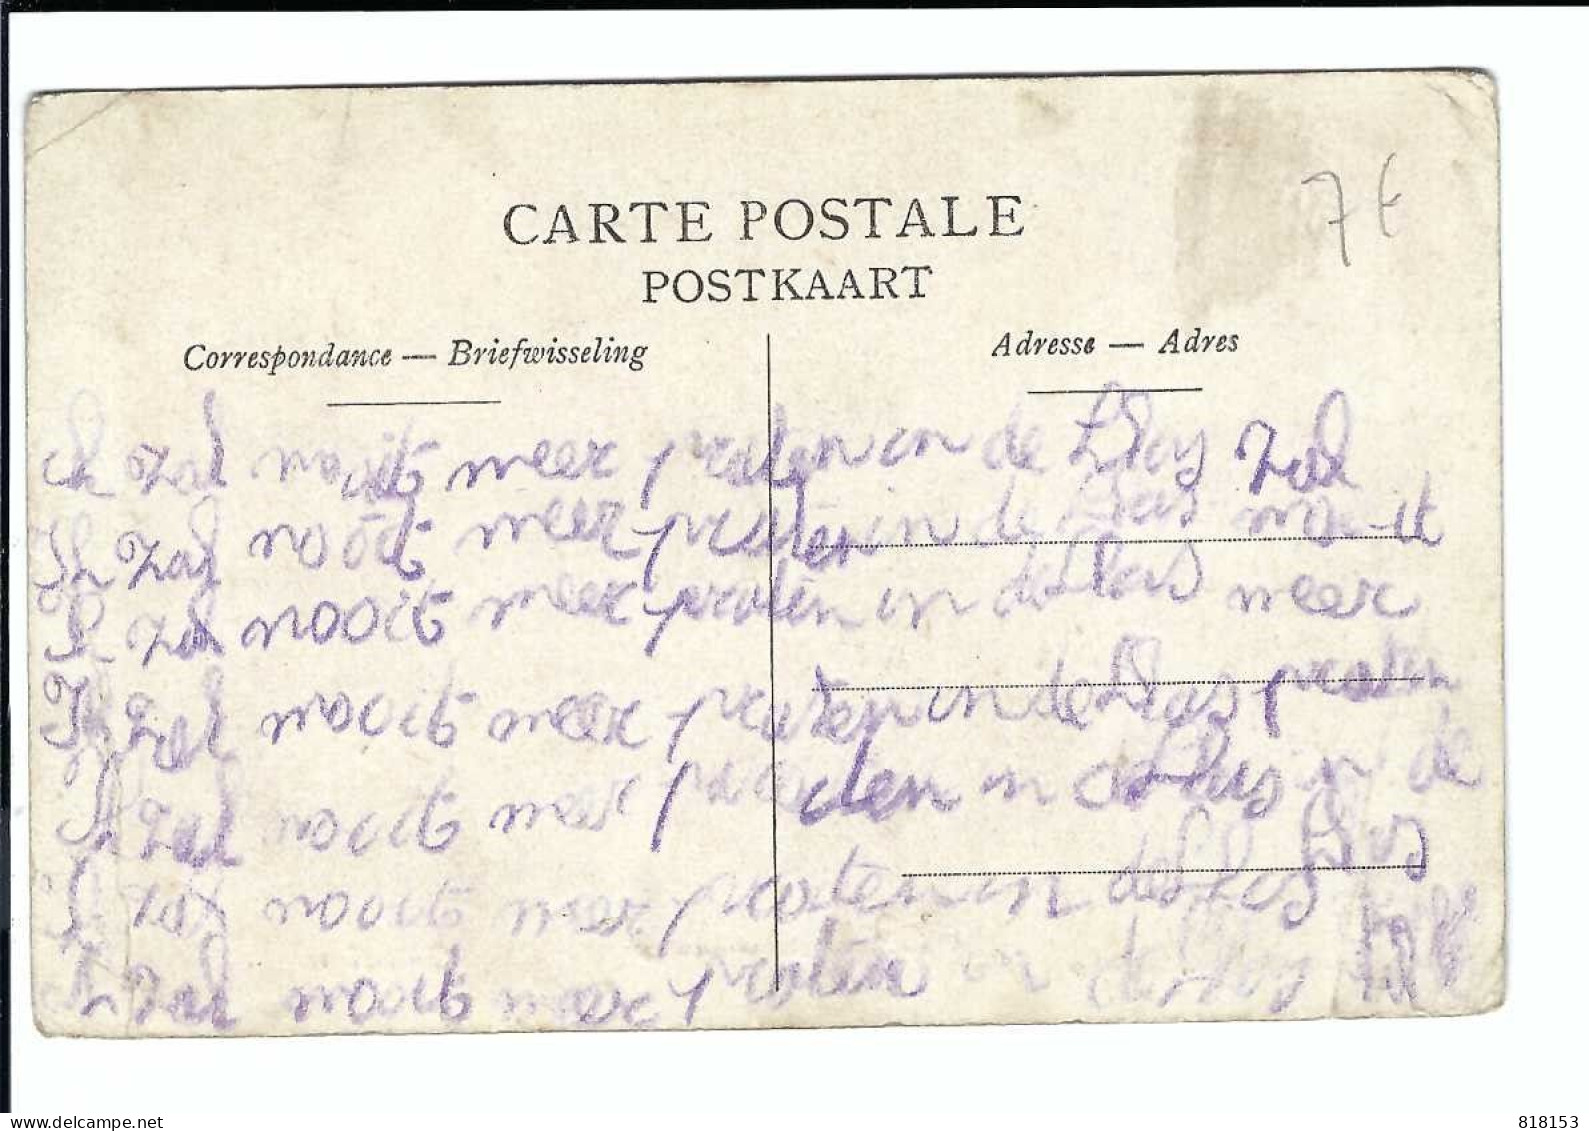 CARTE POSTALE
POSTKAART
7 €
Correspondance — Briefwisseling
Adresse — Adres
ik zal nooit meer praten in de klas zal
Ik zal nooit meer praten in de klas nooit
Ik zal nooit meer praten in de klas meer
Ik zal nooit meer praten in de klas praten
Ik zal nooit meer praeten in de klas in de
Ik zal nooit meer praten in de klas klas
Ik zal nooit meer praten in de klas
www.delcampe.net
818153